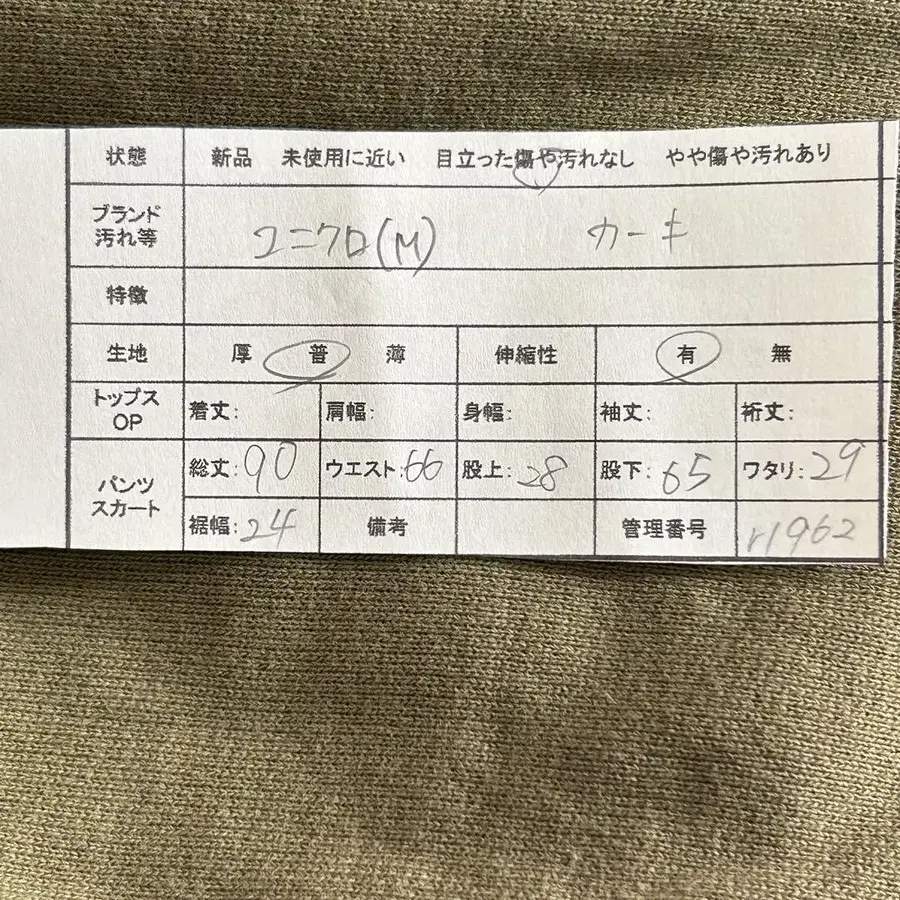 状態 新品 未使用に近い 目立った傷や汚れなし やや傷や汚れあり
ブランド
汚れ等 ユニクロ(M) カーキ
特徴
生地 厚 普 薄 伸縮性 有 無
トップス
OP 着丈: 肩幅: 身幅: 袖丈: 裄丈:
パンツ
スカート 総丈:90 ウエスト:66 股上:28 股下:65 ワタリ:29
裾幅:24 備考 管理番号 r1962